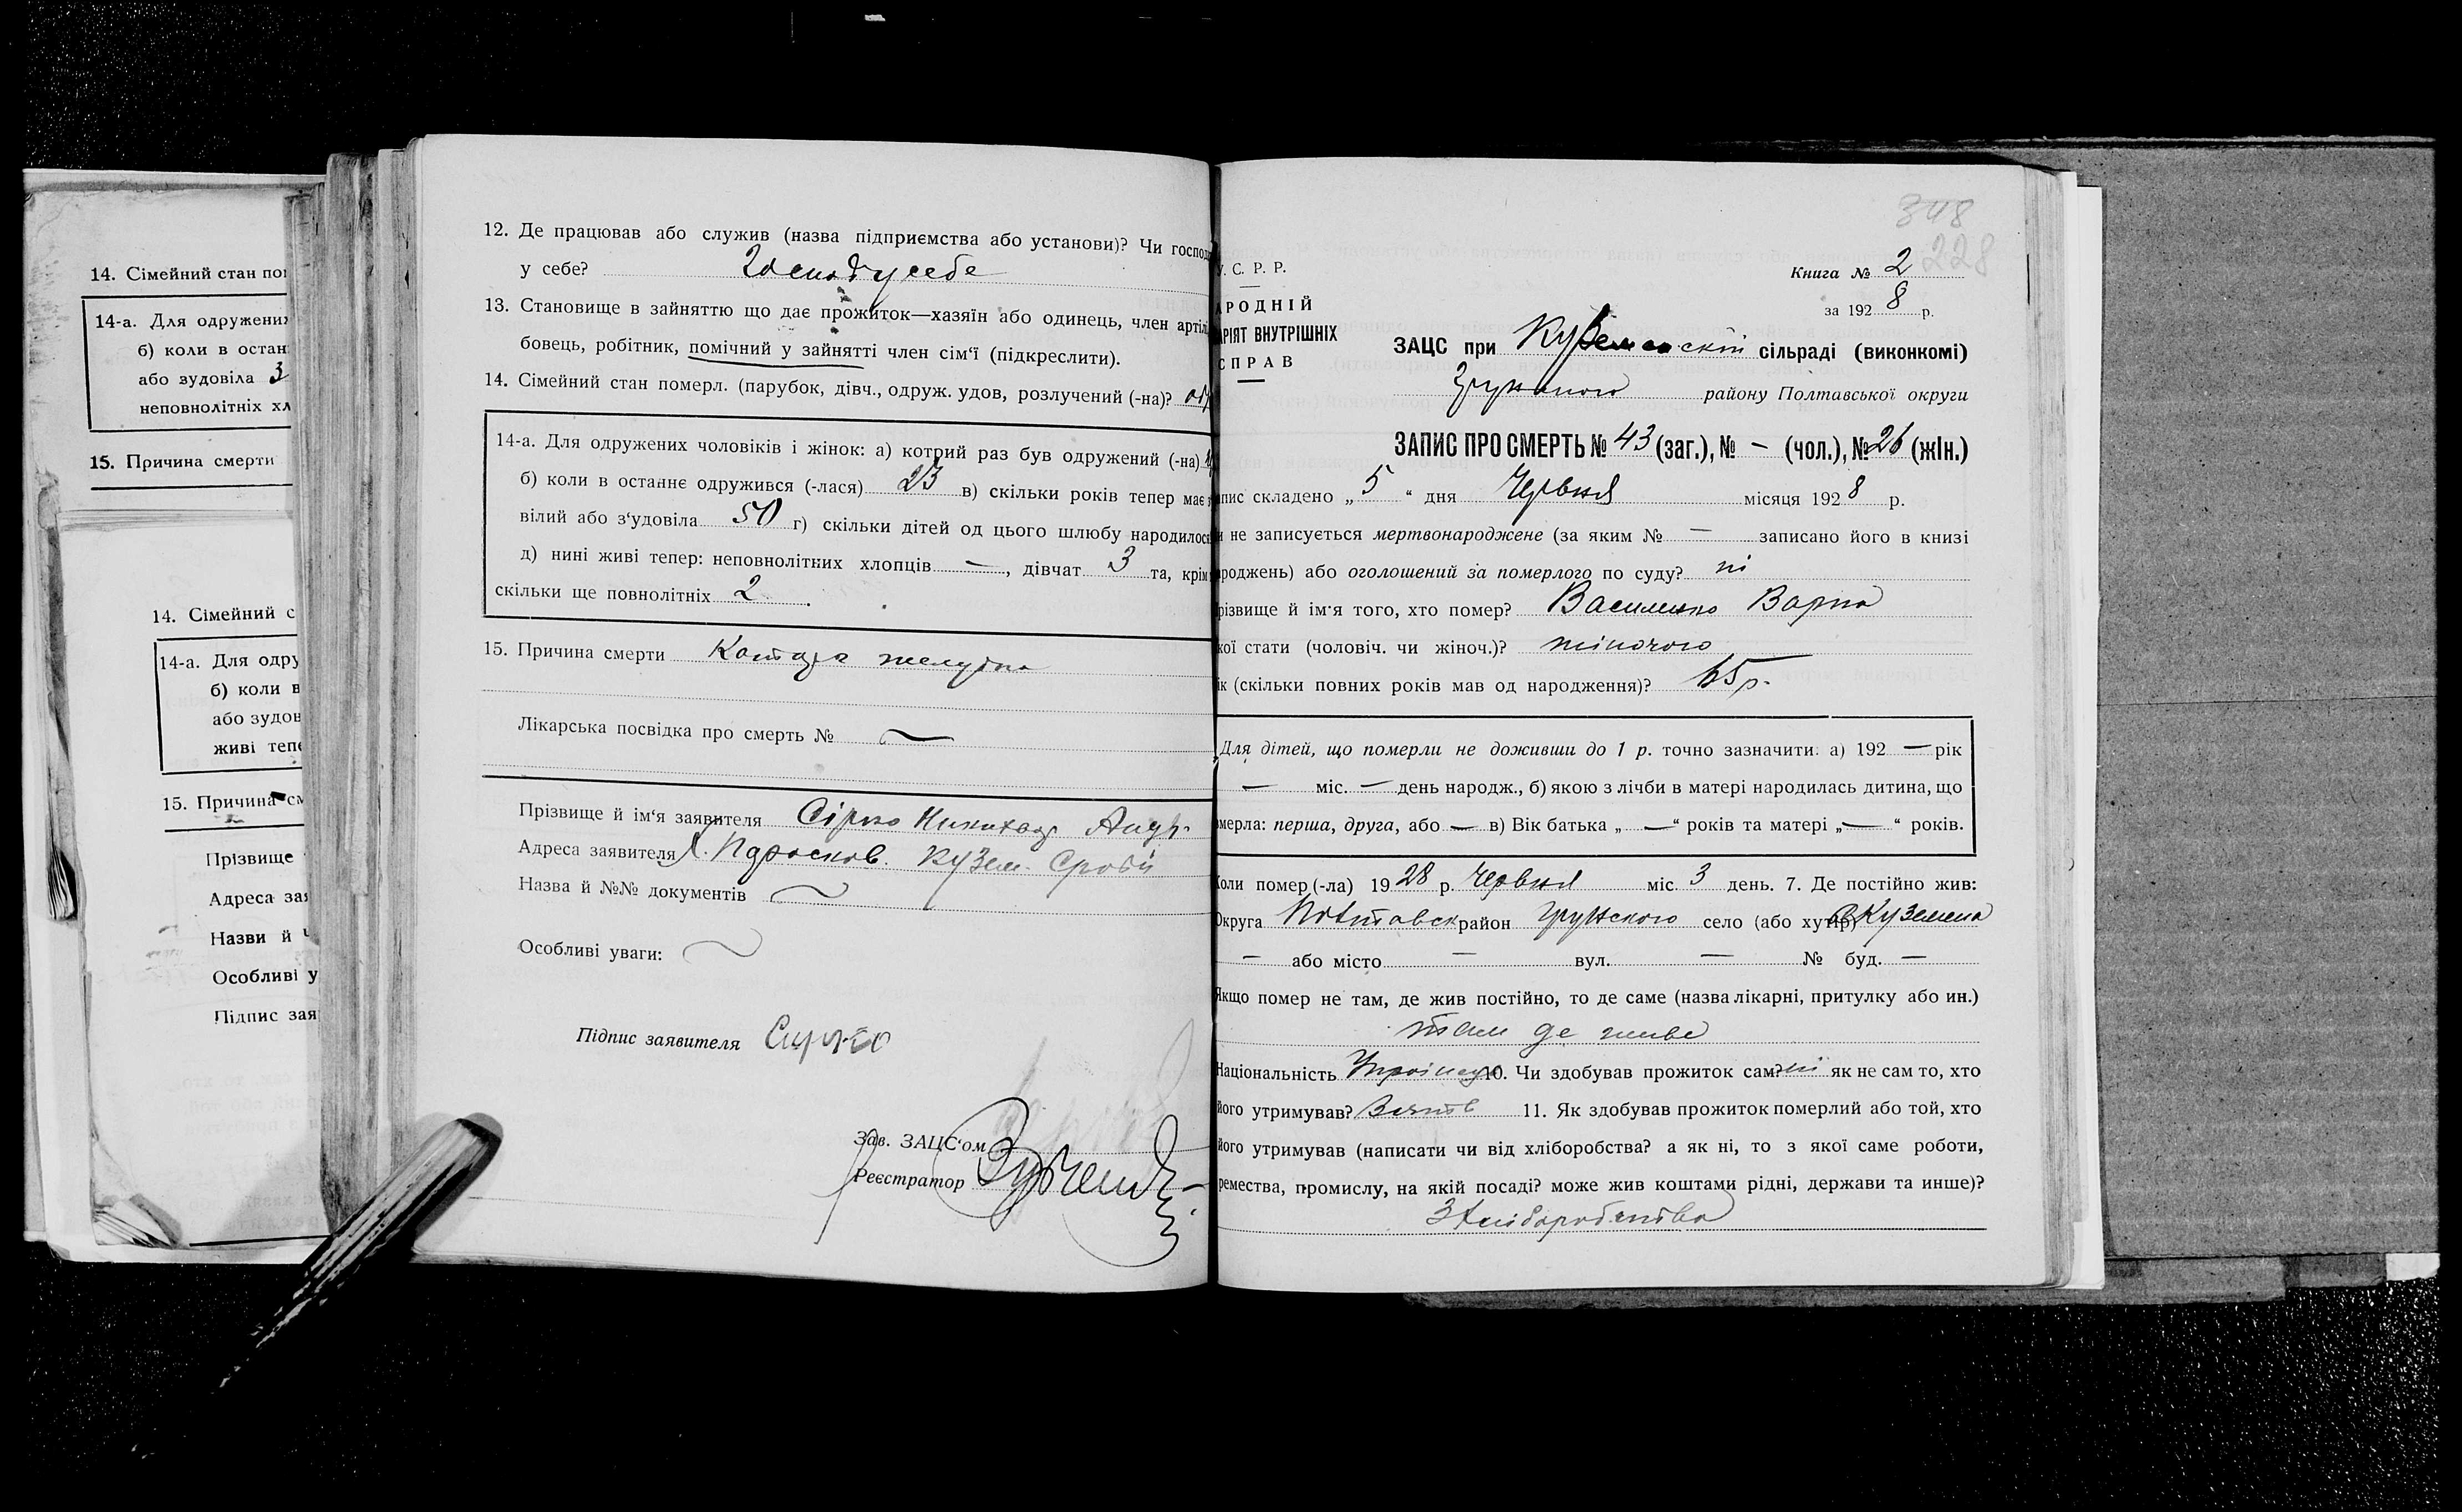 14. Сімейний стан пом
14-а. Для одружених
б) коли в останн
або зудовіла 3
неповнолітніх хл
15. Причина смерти
14. Сімейний с
14-а. Для одру
б) коли в
або зудов
живі тепе
15. Причина см
Прізвище
Адреса зая
Назви й
Особливі у
Підпис зая
12. Де працював або служив (назва підприємства або установи)? Чи господ
у себе? Господ у себе
13. Становище в зайняттю що дає прожиток—хазяїн або одинець, член артіл
бовець, робітник, помічний у зайнятті член сім'ї (підкреслити).
14. Сімейний стан померл. (парубок, дівч., одруж. удов, розлучений (-на)? одр
14-а. Для одружених чоловіків і жінок: а) котрий раз був одружений (-на)
б) коли в останнє одружився (-лася) 23 в) скільки років тепер має
вілий або з'удовіла 50 г) скільки дітей од цього шлюбу народилось
д) нині живі тепер: неповнолітних хлопців —, дівчат 3 та, крім
скільки ще повнолітніх 2.
15. Причина смерти
Лікарська посвідка про смерть № —
Прізвище й ім'я заявителя Сірко
Адреса заявителя Кузем. Сроби
Назва й №№ документів
Особливі уваги:
Підпис заявителя Сирко
Зав. ЗАЦС'ом
Реєстратор
348
228
У. С. Р. Р.
АРОДНІЙ
АРІЯТ ВНУТРІШНІХ
СПРАВ
Книга № 2
за 1928 р.
ЗАЦС при Куземенскій сільраді (виконкомі)
Грунського району Полтавської округи
ЗАПИС ПРО СМЕРТЬ № 43 (заг.), № — (чол.), № 26 (жін.)
апис складено „5“ дня Червня місяця 1928 р.
и не записується мертвонароджене (за яким № — записано його в книзі
ароджень) або оголошений за померлого по суду? ні
різвище й ім'я того, хто помер? Василенко
кої стати (чоловіч. чи жіноч.)? жіночого
ік (скільки повних років мав од народження)? 65 р.
Для дітей, що померли не доживши до 1 р. точно зазначити: а) 192 — рік
— міс. — день народж., б) якою з лічби в матері народилась дитина, що
мерла: перша, друга, або — в) Вік батька „—“ років та матері „—“ років.
Коли помер (-ла) 1928 р. Червня міс. 3 день. 7. Де постійно жив:
Округа Полтавск район Грунского село (або хутір) с Куземена
— або місто — вул. — № буд. —
Якщо помер не там, де жив постійно, то де саме (назва лікарні, притулку або ин.)
там де живе
Національність 10. Чи здобував прожиток сам? ні як не сам то, хто
його утримував? Зять 11. Як здобував прожиток померлий або той, хто
його утримував (написати чи від хліборобства? а як ні, то з якої саме роботи,
ремества, промислу, на якій посаді? може жив коштами рідні, держави та инше)?
З хліборобства